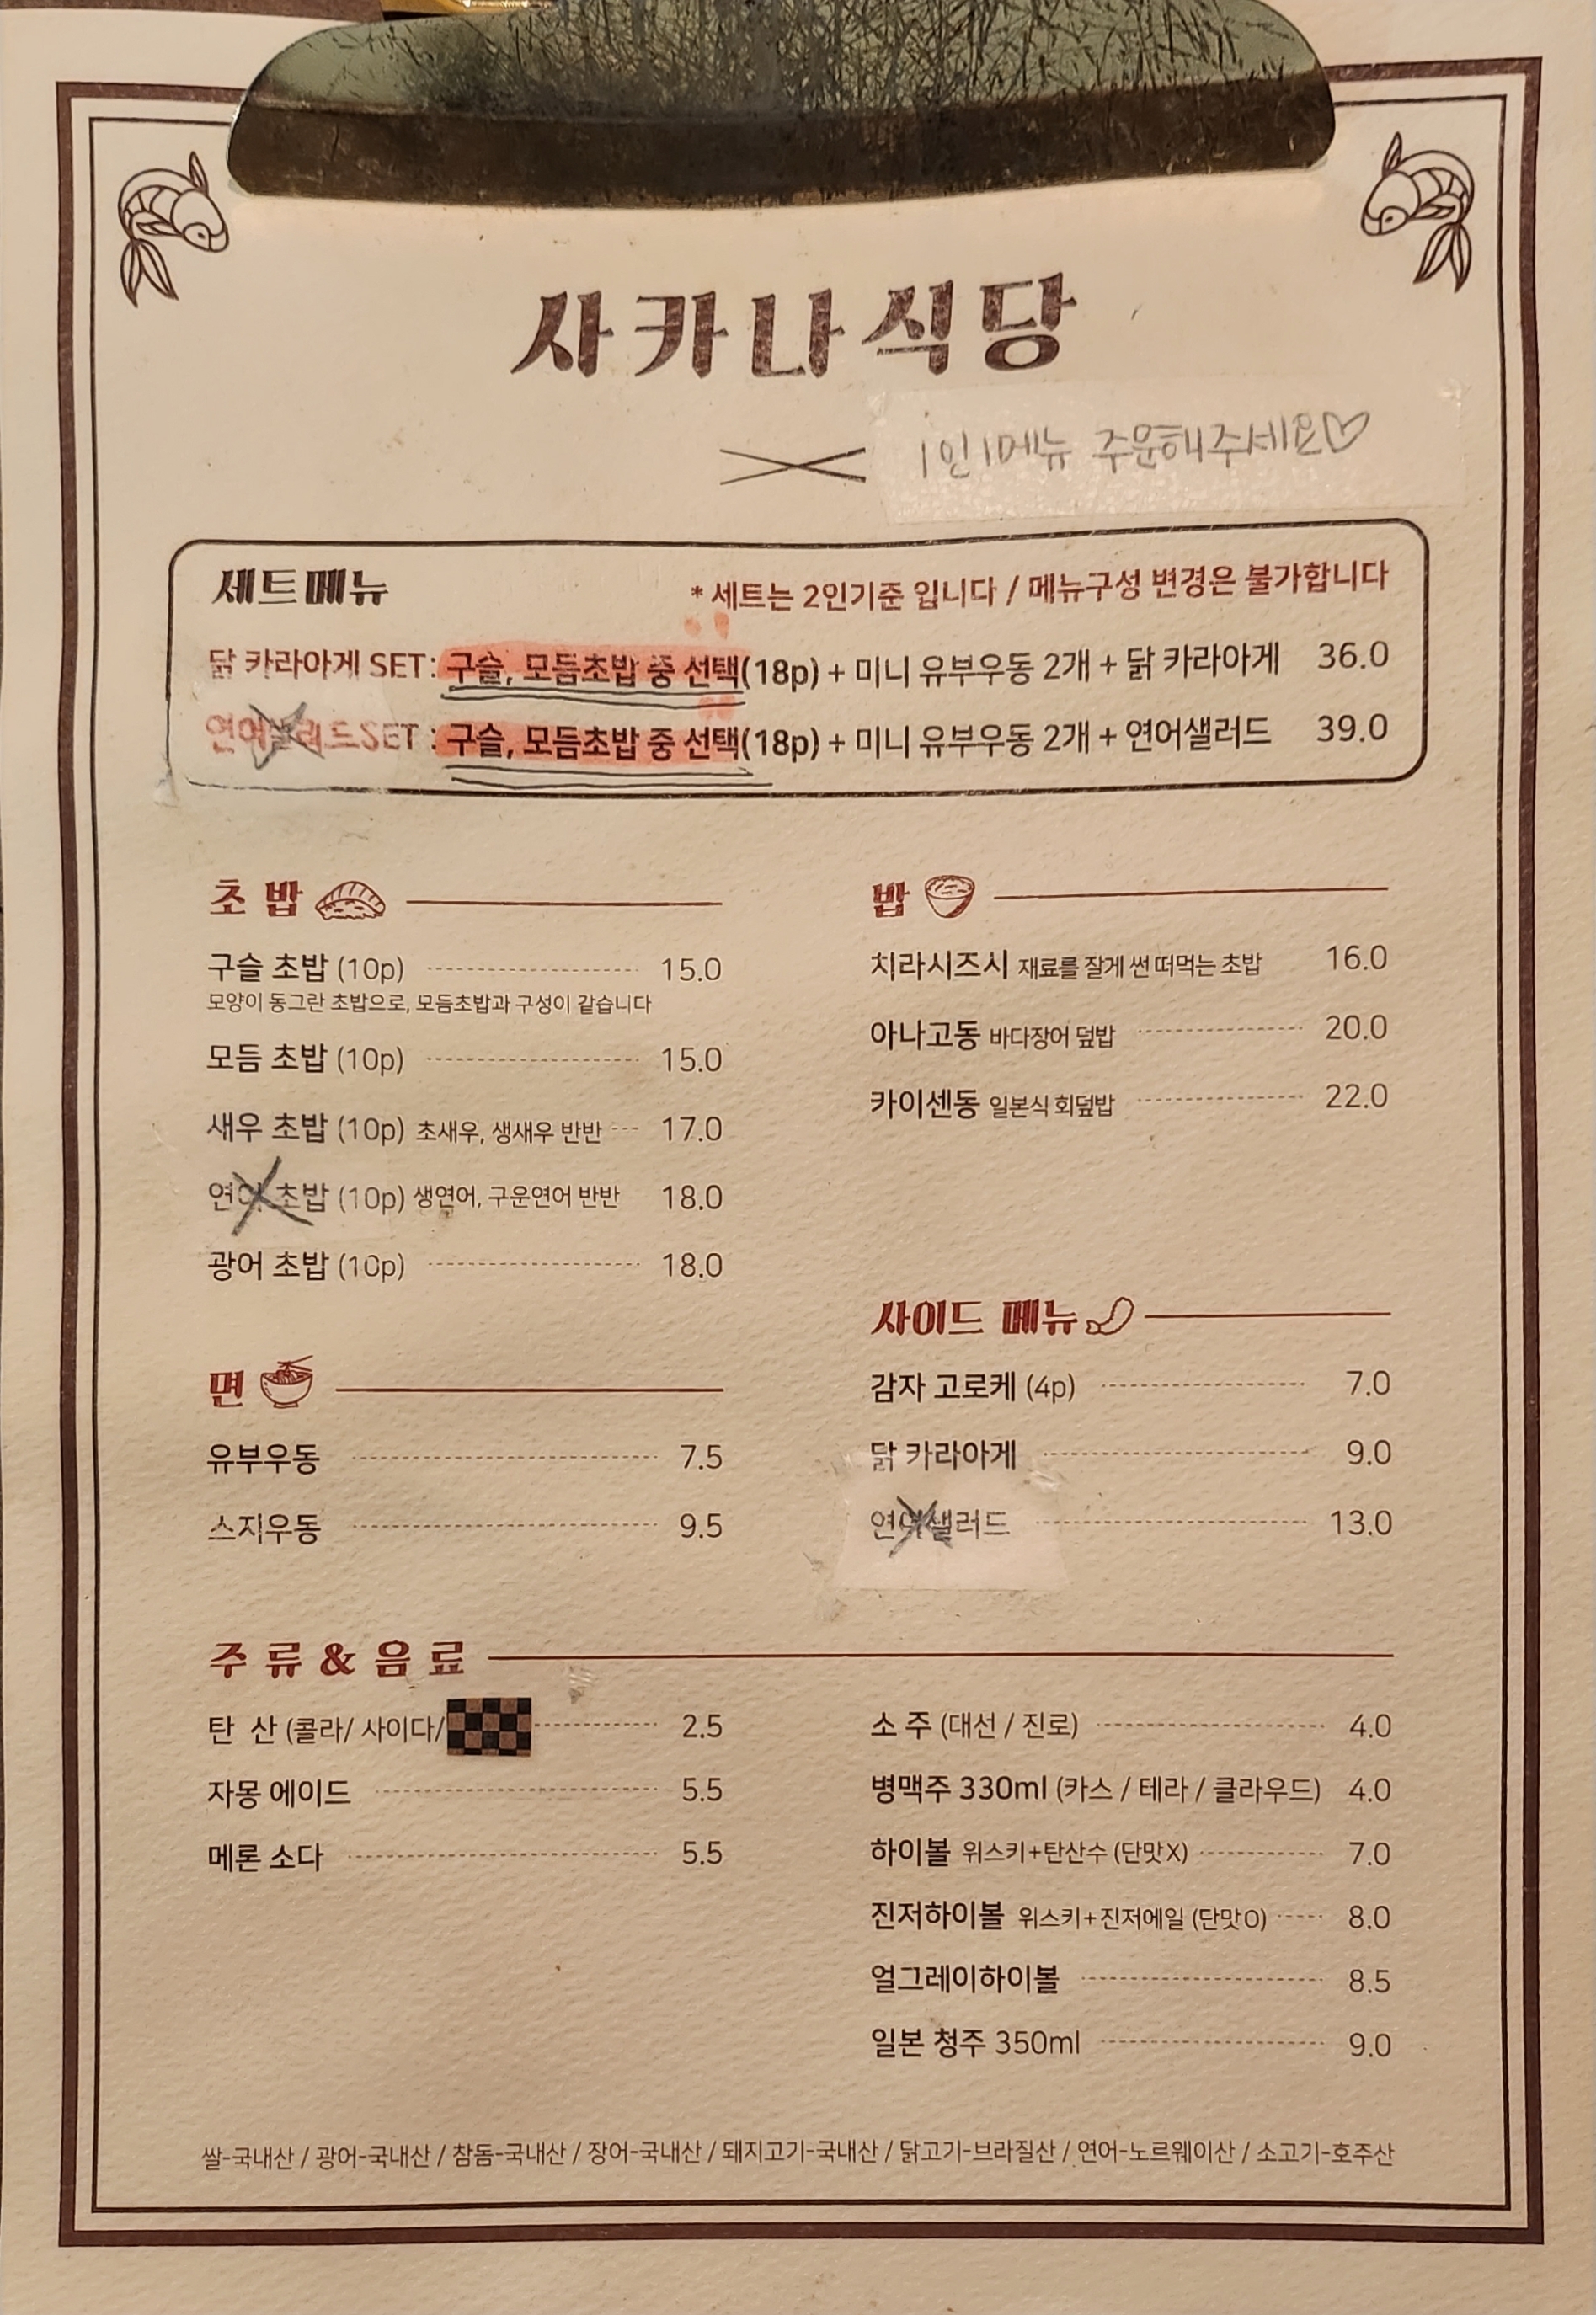 사카나식당
1인 1메뉴 주문해주세요♡
세트메뉴
* 세트는 2인기준 입니다 / 메뉴구성 변경은 불가합니다
닭 카라아게 SET : 구슬, 모듬초밥 중 선택(18p) + 미니 유부우동 2개 + 닭 카라아게 36.0
연어샐러드SET : 구슬, 모듬초밥 중 선택(18p) + 미니 유부우동 2개 + 연어샐러드 39.0
초 밥
구슬 초밥 (10p) 15.0
모양이 동그란 초밥으로, 모듬초밥과 구성이 같습니다
모듬 초밥 (10p) 15.0
새우 초밥 (10p) 초새우, 생새우 반반 17.0
연어 초밥 (10p) 생연어, 구운연어 반반 18.0
광어 초밥 (10p) 18.0
면
유부우동 7.5
스지우동 9.5
밥
치라시즈시 재료를 잘게 썬 떠먹는 초밥 16.0
아나고동 바다장어 덮밥 20.0
카이센동 일본식 회덮밥 22.0
사이드 메뉴
감자 고로케 (4p) 7.0
닭 카라아게 9.0
연어샐러드 13.0
주 류 & 음 료
탄 산 (콜라/ 사이다/ 2.5
자몽 에이드 5.5
메론 소다 5.5
소 주 (대선 / 진로) 4.0
병맥주 330ml (카스 / 테라 / 클라우드) 4.0
하이볼 위스키+탄산수 (단맛X) 7.0
진저하이볼 위스키+진저에일 (단맛O) 8.0
얼그레이하이볼 8.5
일본 청주 350ml 9.0
쌀-국내산 / 광어-국내산 / 참돔-국내산 / 장어-국내산 / 돼지고기-국내산 / 닭고기-브라질산 / 연어-노르웨이산 / 소고기-호주산